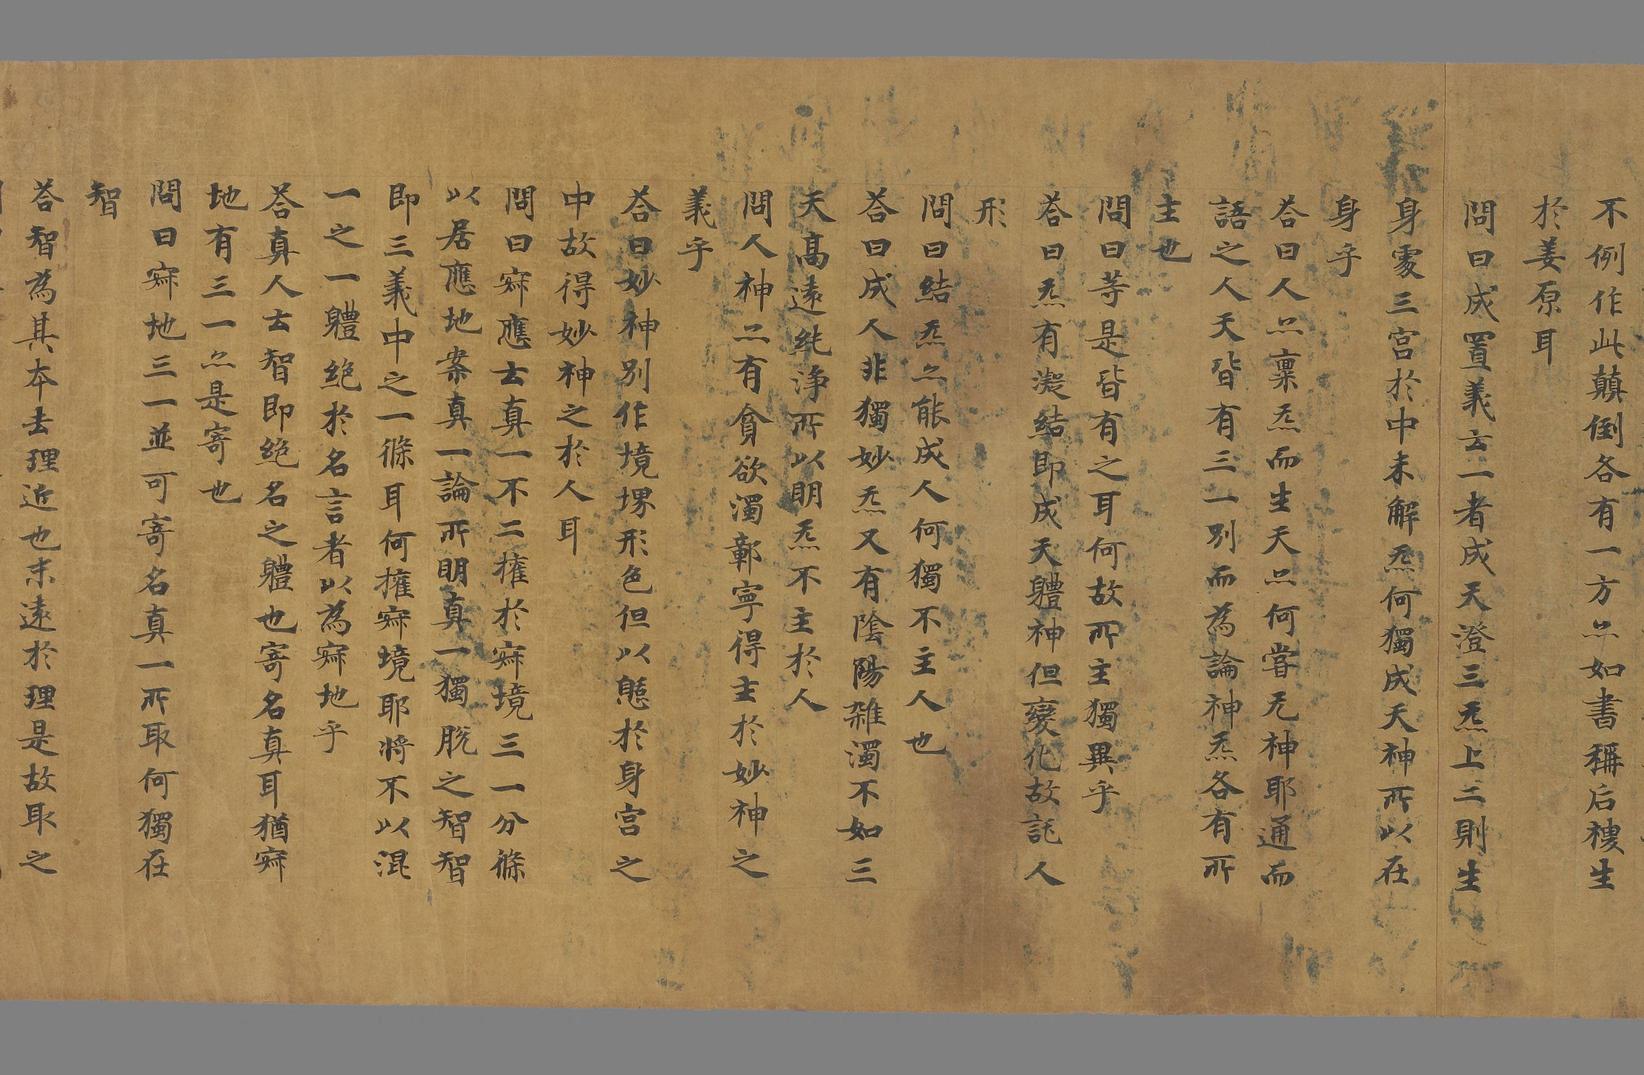 不例作此顛倒各有一方亦如書稱后稷生
於姜原耳
問曰成置義云一者成天澄三炁上三則生
身處三宮於中未解炁何獨成天神所以在
身乎
荅曰人亦稟炁而生天亦何嘗无神耶通而
語之人天皆有三一別而為論神炁各有所
主也
問曰等是皆有之耳何故所主獨異乎
荅曰炁有凝結即成天軆神但變化故託人
形
問曰結炁亦能成人何獨不主人也
荅曰成人非獨妙炁又有陰陽雜濁不如三
天高遠純淨所以明炁不主於人
問人神亦有貪欲濁鄣寧得主於妙神之
義乎
荅曰妙神別作境堺形色但以態於身宮之
中故得妙神之於人耳
問曰寂應云真一不二擁於寂境三一分條
以居應地案真一論所明真一獨脫之智智
即三義中之一條耳何擁寂境耶將不以混
一之一軆絕於名言者以為寂地乎
荅真人云智即絕名之軆也寄名真耳猶寂
地有三一亦是寄也
問曰寂地三一並可寄名真一所取何獨在
智
荅智為其本去理近也末遠於理是故取之